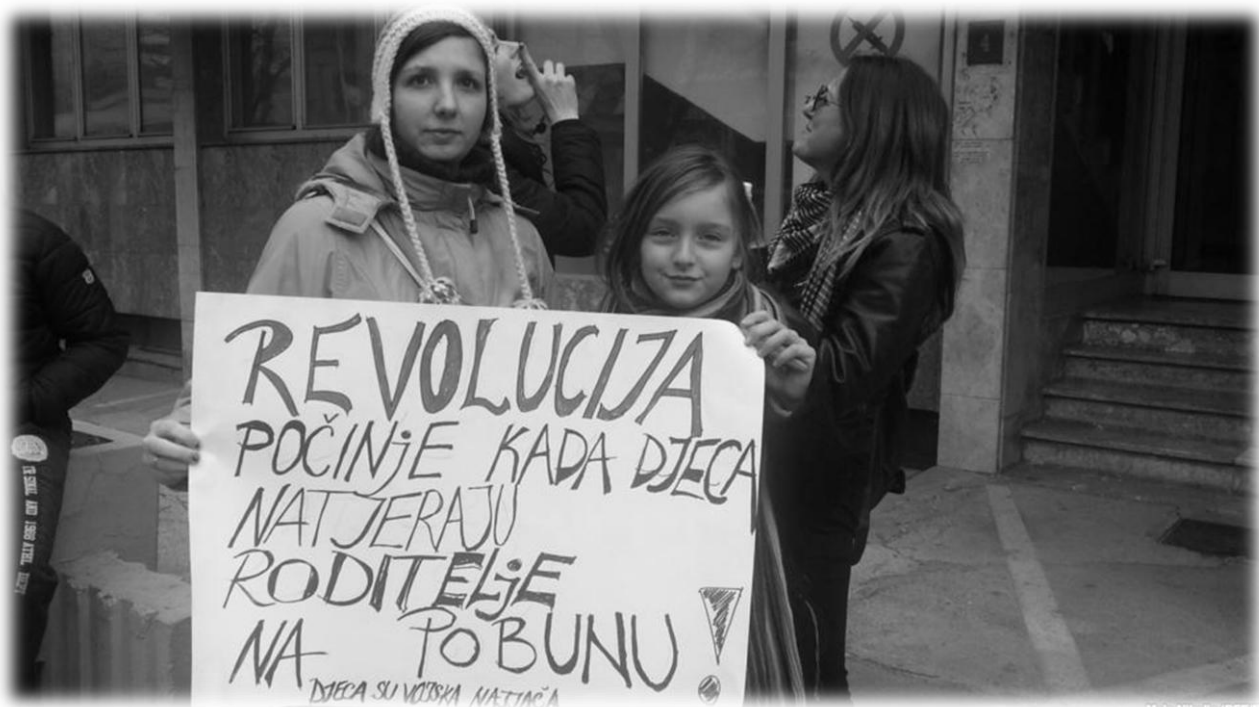 REVOLUCIJA
POČINjE KADA DJECA
NATJERAJU
RODITELjE
NA POBUNU!
DJECA SU VOJSKA NAJJAČA